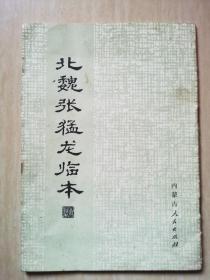 北魏张猛龙临本
内蒙古人民出版社